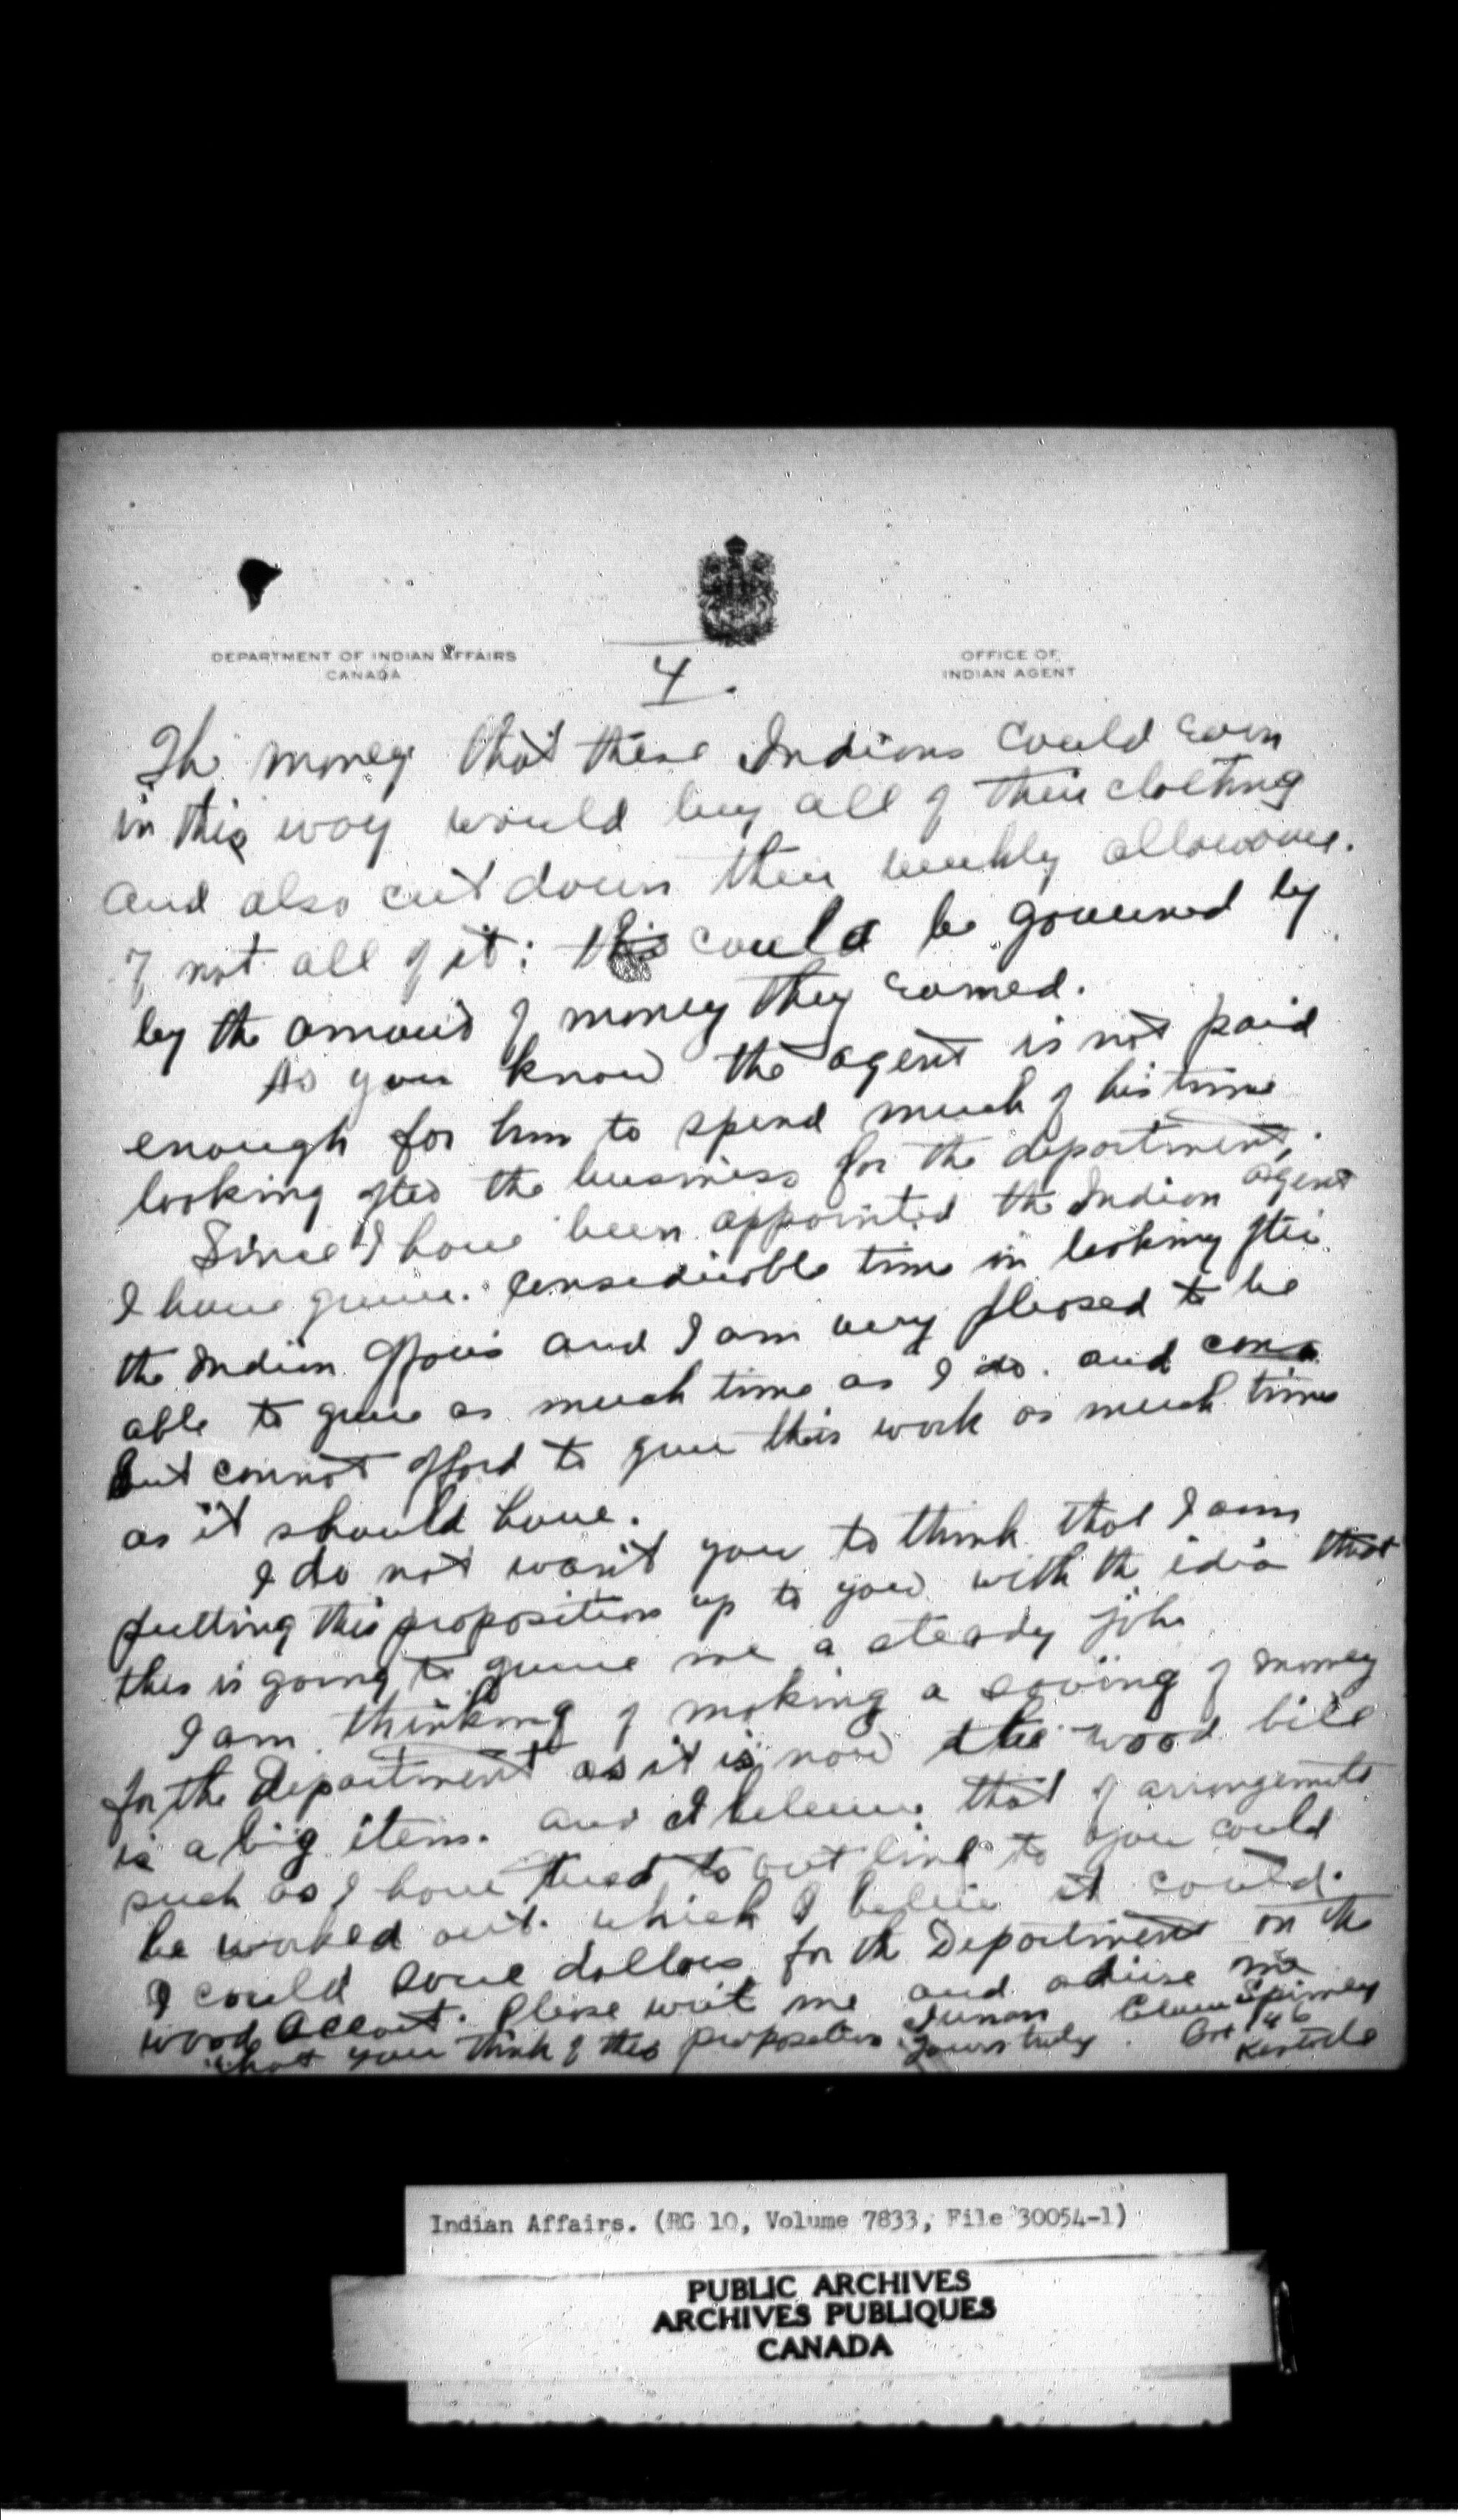 DEPARTMENT OF INDIAN AFFAIRS
CANADA
OFFICE OF
INDIAN AGENT
4.
The money that these Indians could earn
in this way would buy all of their clothing
and also cut down their weekly allowance.
if not all of it: this could be governed by
by the amount of money they earned.
As you know the agent is not paid
enough for him to spend much of his time
looking after the business for the department,
Since I have been appointed the Indian agent
I have given considerable time in looking after
the Indian affairs and I am very pleased to be
able to give as much time as I do. and
but cannot afford to give this work as much time
as it should have.
I do not want you to think that I am
putting this proposition up to you with the idea that
this is going to give me a steady job
I am thinking of making a saving of money
for the Department as it is now the wood bill
is a big item. and I believe that if arrangements
such as I have tried to out line to you could
be worked out. which I belive it could.
I could save dollars for the Department on the
wood account. Please write me and advise me
what you think of this proposition
Yours truly
Spinney
Kentville
Indian Affairs. (RG 10, Volume 7833, File 30054-1)
PUBLIC ARCHIVES
ARCHIVES PUBLIQUES
CANADA